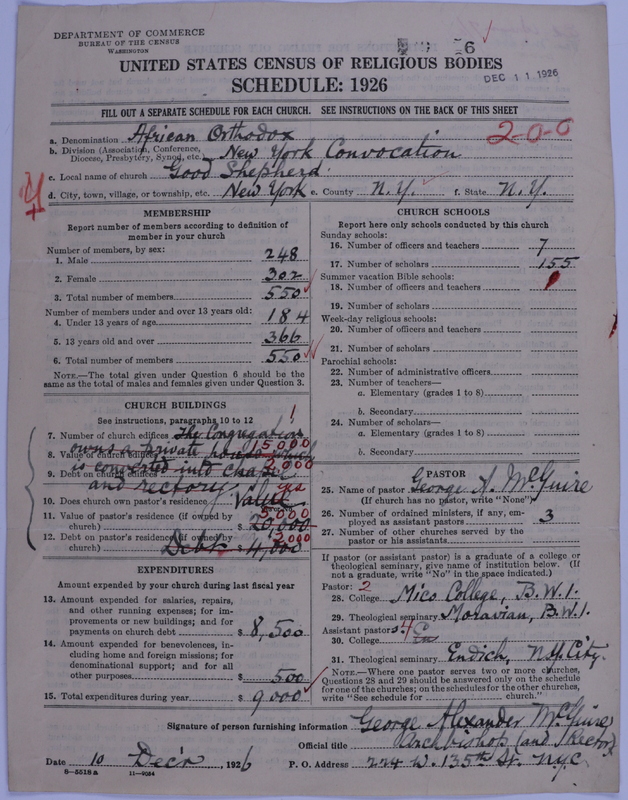 DEPARTMENT OF COMMERCE
BUREAU OF THE CENSUS
WASHINGTON
6
DEC 11 1926
UNITED STATES CENSUS OF RELIGIOUS BODIES
SCHEDULE: 1926
FILL OUT A SEPARATE SCHEDULE FOR EACH CHURCH. SEE INSTRUCTIONS ON THE BACK OF THIS SHEET
a. Denomination African Orthodox
2-0-0
b. Division (Association, Conference, Diocese, Presbytery, Synod, etc. New York Convocation
c. Local name of church Good Shepherd
d. City, town, village, or township, etc. New York e. County N.Y. f. State N.Y.
MEMBERSHIP
Report number of members according to definition of
member in your church
Number of members, by sex:
1. Male 248
2. Female 302
3. Total number of members 550
Number of members under and over 13 years old:
4. Under 13 years of age 184
5. 13 years old and over 366
6. Total number of members 550
NOTE.—The total given under Question 6 should be
same as the total of males and females given under Question 3.
CHURCH BUILDINGS
See instructions, paragraphs 10 to 12
1
7. Number of church edifices The Congregation
owns a private house which
8. Value of church edifices 15,000
is converted into chapel
9. Debt on church edifices 2,000
and rectory
yes
10. Does church own pastor's residence Value
11. Value of pastor's residence (if owned by
church) $ 20,000 5,000
12. Debt on pastor's residence (if owned by
church) Debt $ 4,000 2,000
EXPENDITURES
Amount expended by your church during last fiscal year
13. Amount expended for salaries, repairs,
and other running expenses; for im-
provements or new buildings; and for
payments on church debt $ 8,500
14. Amount expended for benevolences, in-
cluding home and foreign missions; for
denominational support; and for all
other purposes $ 500
15. Total expenditures during year $ 9,000
CHURCH SCHOOLS
Report here only schools conducted by this church
Sunday schools:
16. Number of officers and teachers 7
17. Number of scholars 155
Summer vacation Bible schools:
18. Number of officers and teachers
19. Number of scholars
Week-day religious schools:
20. Number of officers and teachers
21. Number of scholars
Parochial schools:
22. Number of administrative officers
23. Number of teachers—
a. Elementary (grades 1 to 8)
b. Secondary
24. Number of scholars—
a. Elementary (grades 1 to 8)
b. Secondary
PASTOR
25. Name of pastor George A. McGuire
(If church has no pastor, write "None")
26. Number of ordained ministers, if any, em-
ployed as assistant pastors 3
27. Number of other churches served by the
pastor or his assistants
If pastor (or assistant pastor) is a graduate of a college or
theological seminary, give name of institution below. (If
not a graduate, write "No" in the space indicated.)
Pastor: 2
28. College Mico College, B.W.I.
29. Theological seminary Moravian, B.W.I.
Assistant pastor:
30. College
31. Theological seminary Endich, N.Y. City.
NOTE.—Where one pastor serves two or more churches,
Questions 28 and 29 should be answered only on the schedule
for one of the churches; on the schedules for the other churches,
write "See schedule for church."
Signature of person furnishing information George Alexander McGuire
Official title Archbishop (and Rector)
Date 10 Dec'r, 1926 P. O. Address 224 W. 135th St. N.Y.C.
8—5518 a 11—9064